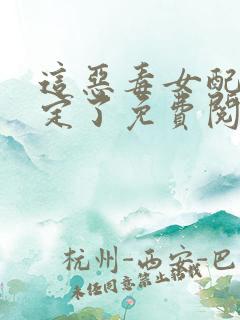 這惡毒女配
定了免費閱
杭州-西安-巴
未经同意禁止转载